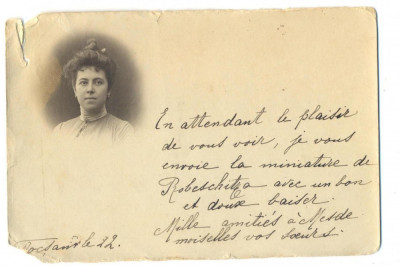 En attendant le plaisir
de vous voir, je vous
envoie la miniature de
Robeschitza avec un bon
et doux baiser.
Mille amitiés à Mesde
moiselles vos sœurs.
le 22.